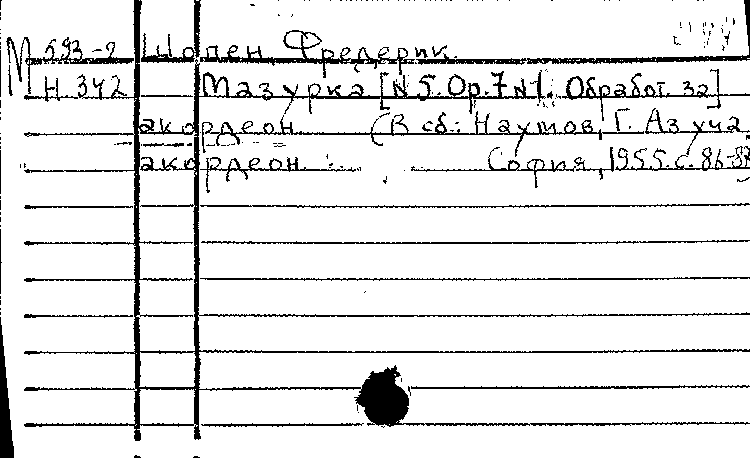 М 593-2 Шопен, Фредерик.
Н 342 Мазурка [N 5. Op. 7 N 1. Обработ. за]
акордеон. (В сб.: Наумов, Г. Аз уча
акордеон. София, 1955. с. 86-88)